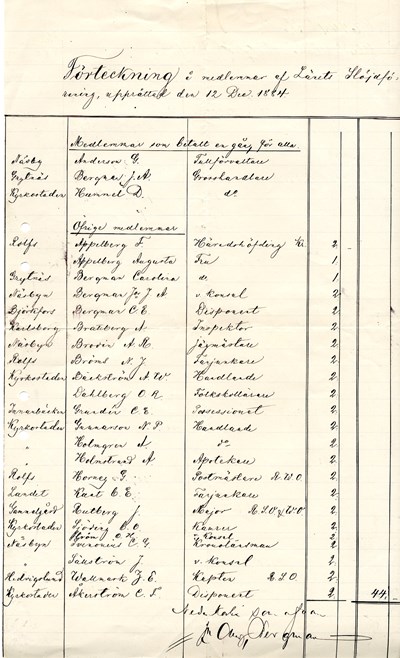 Förteckning å medlemmar af Länets Slöjdför-
ening, upprättad den 12 Dec. 1884
Medlemmar som betalt en gång för alla.
Näsby Anderson G. Tullförvaltare
Grytnäs Bergman J. A. Grosshandlare
Kyrkostaden Hummel D. do
Öfrige medlemmar
Rolfs Appelberg F. Häradshöfding Kr. 2
Appelberg Augusta Fru 1
Grytnäs Bergman Carolina d:o 1
Näsbyn Bergman Jr J A v. konsul 2
Björkfors Bergman C E. Disponent 2
Karlsborg Bratberg A. Inspektor 2
Näsbyn Brosin A. R. Jägmästare 2
Rolfs Broms N. J Tärjankare 2
Kyrkostaden Bäckström A W. Handlande 2
Dahlberg O. A. Folkskollärare 2
Grundin C. E. Possessionat 2
Kyrkostaden Gunnarson N. P Handlande 2
" Holmgren A do 2
Holmstrand A Apotekare 2
Rolfs Horney G. Postmästare R. W. O. 2
Landet Kant C. E. 2
Hultberg J. Major 2
Kyrkostaden Sjöding C. O. 2
Näsbyn Svenonius C. G. Kronolänsman 2
" J. v. konsul 2
Wallmark J. E. Kapten 2
Kyrkostaden Åkerström C. F. Disponent 2 44